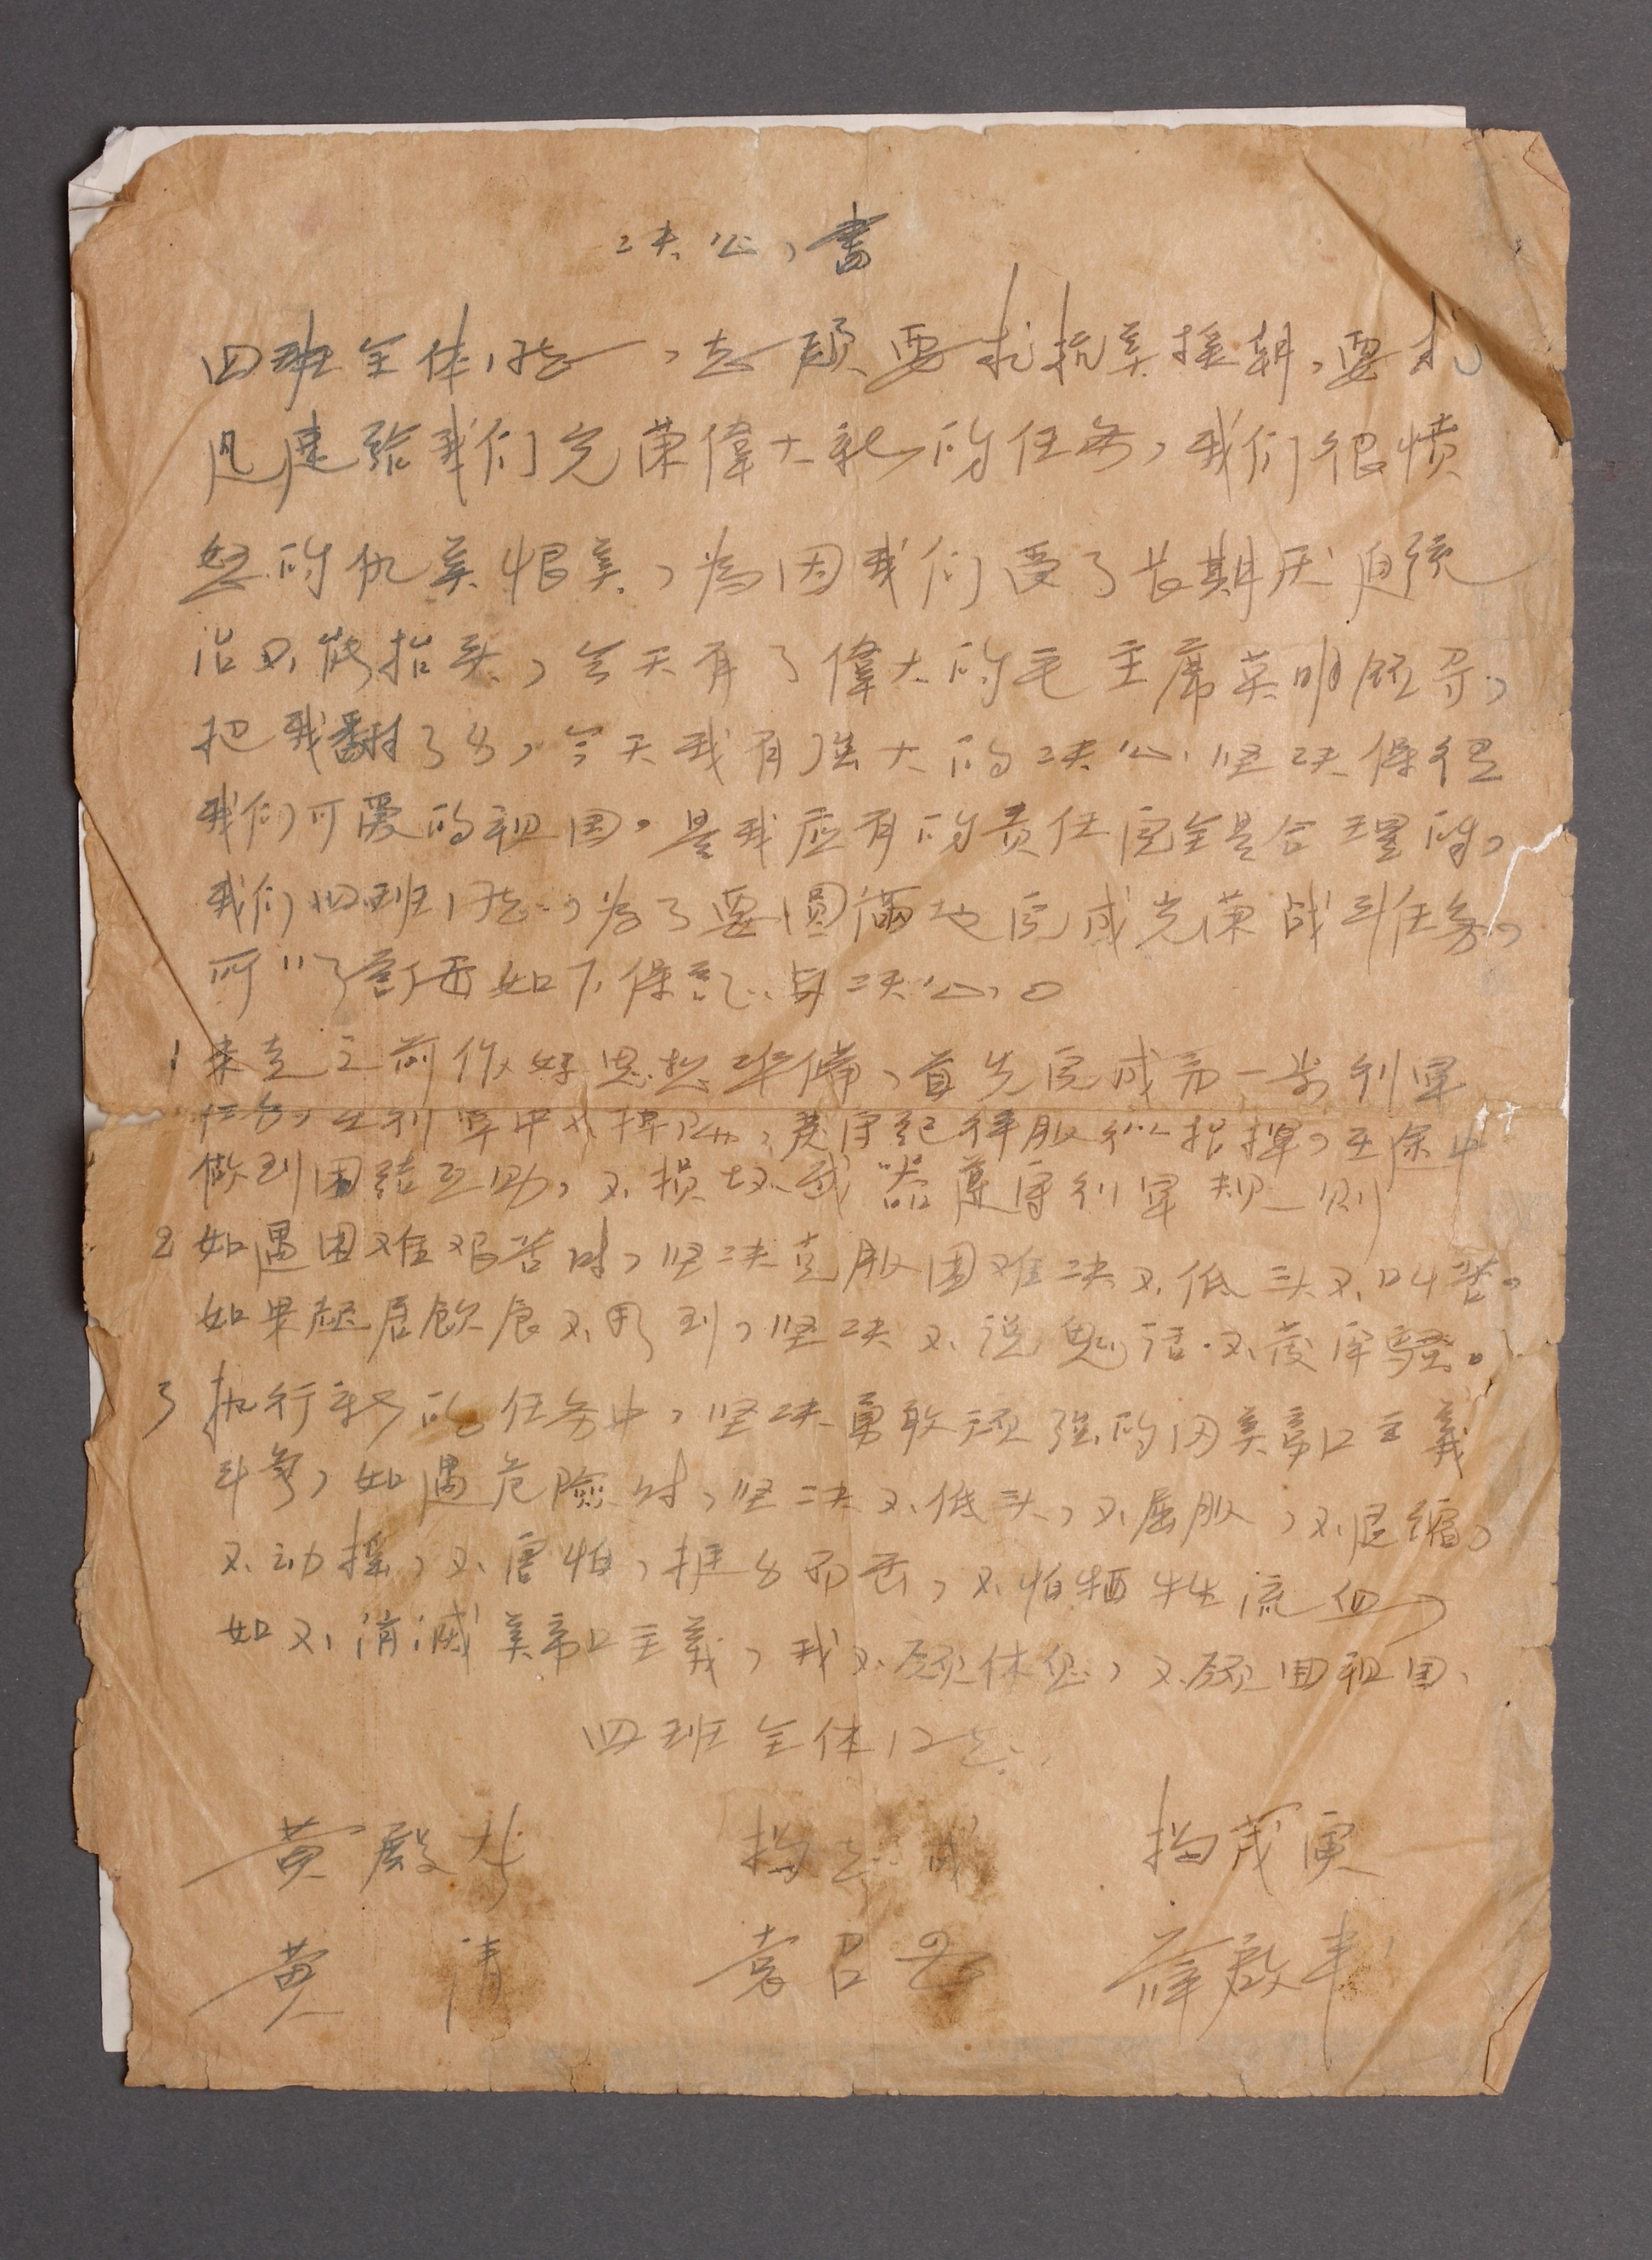 决心书
四班全体同志，志愿要求抗美援朝，要求
迅速给我们光荣偉大新的任务，我们很愤
怒的仇美恨美，為因我们受了长期压迫统
治不能抬头，今天有了偉大的毛主席英明领导，
把我翻了身，今天我有强大的决心坚决保衛
我们可爱的祖国。是我应有的责任完全是合理的，
我们四班同志，为了要圆满地完成光荣战斗任务，
所以了 如下保证与决心。
1 未走之前作好思想準備，首先完成第一步行军
任务，在行军中不掉队，遵守纪律服从指揮，在途中
做到团结互助，不损坏武器遵守行军规则
2 如遇困难艰苦时，坚决克服困难决不低头不叫苦。
如果起居飲食不周到，坚决不说怪话·不发牢騷。
3 执行新的任务中，坚决勇敢顽强的同美帝国主義
斗争，如遇危險时，坚决不低头，不屈服，不退缩，
不动摇，不害怕，挺身而出，不怕牺牲流血，
如不消滅美帝国主義，我不愿休息，不愿回祖国、
四班全体同志
黄殿 志成 茂寅
黄 清 袁召 薛啟丰